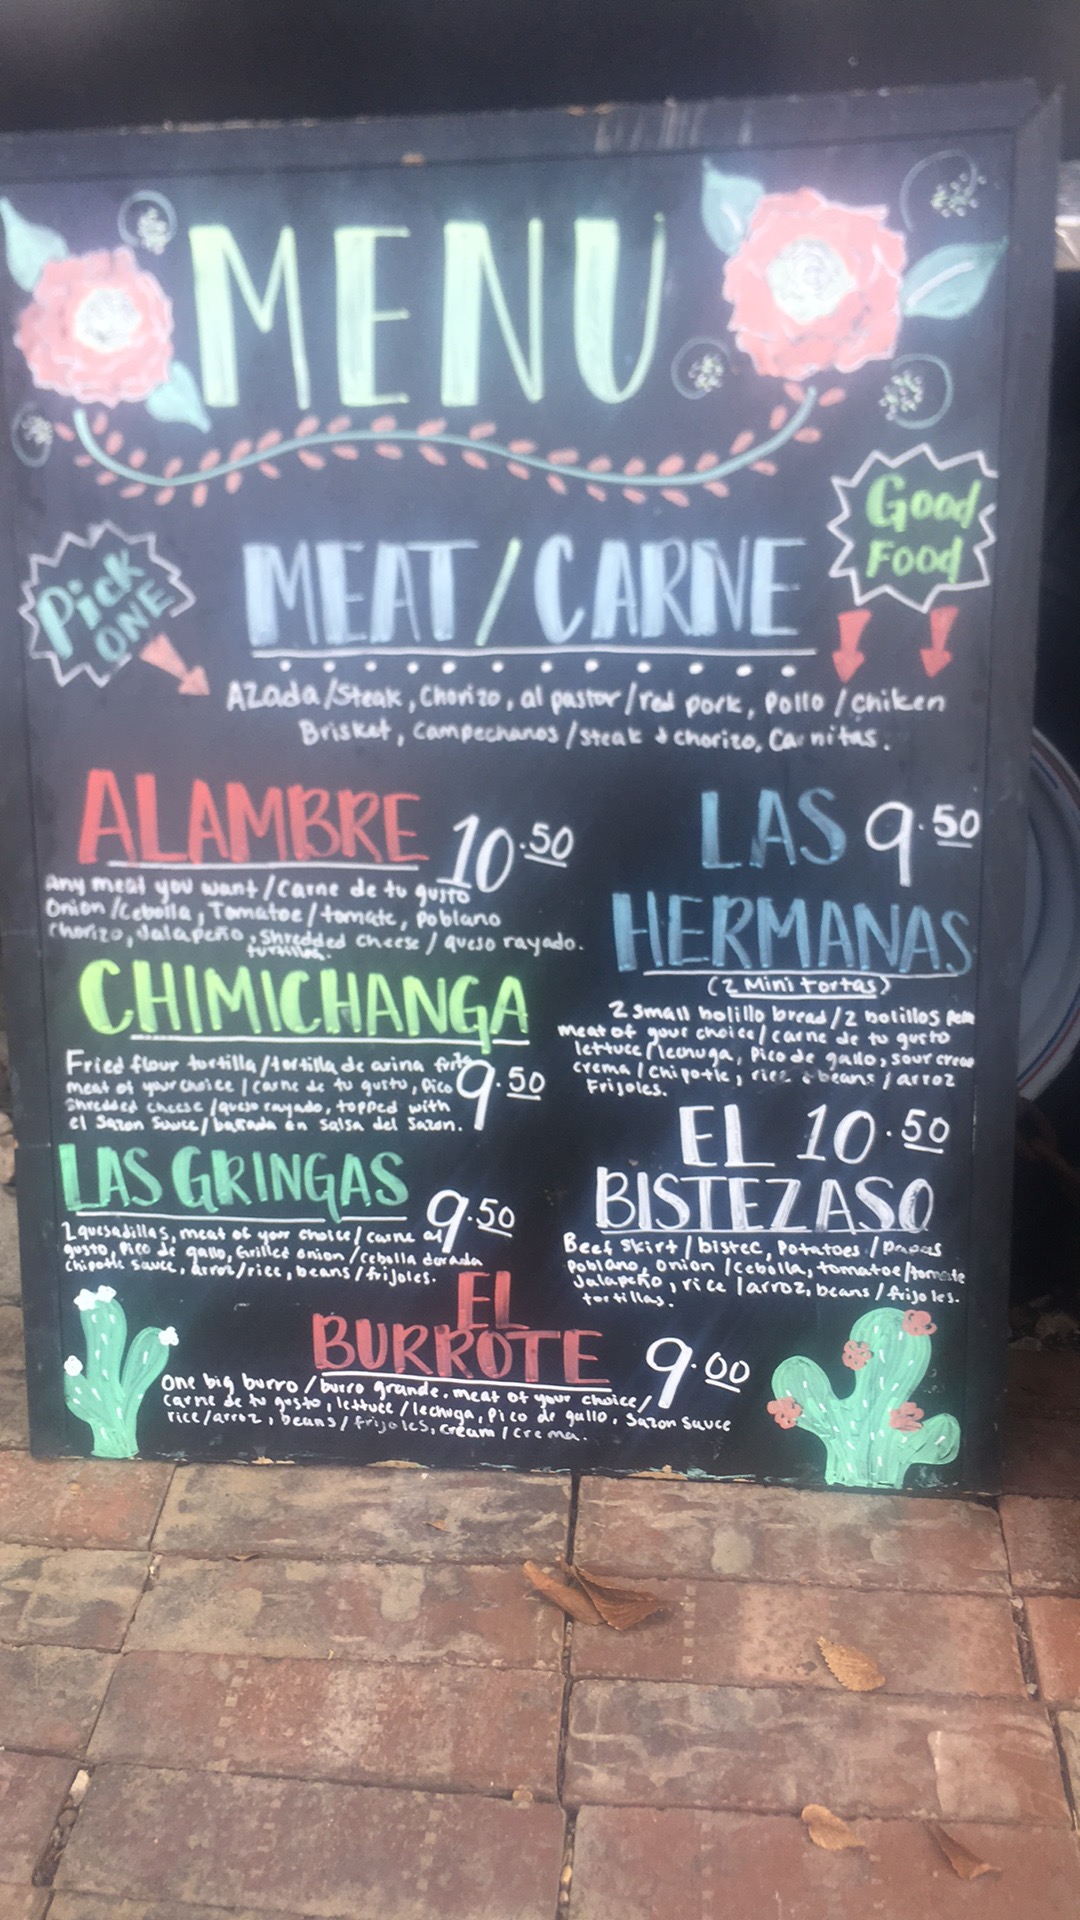 MENU
Good
Food
Pick
ONE
MEAT/CARNE
AZada/Steak, Chorizo, al pastor/red pork, Pollo/chiken
Brisket, Campechanos/steak & chorizo, Carnitas.
ALAMBRE 10.50
any meat you want/Carne de tu gusto
Onion/Cebolla, Tomatoe/tomate, poblano
Chorizo, Jalapeño, Shredded cheese/queso rayado.
turtillas.
LAS 9.50
HERMANAS
(2 Mini tortas)
2 Small bolillo bread/2 bolillos
meat of your choice/carne de tu gusto
lettuce/lechuga, pico de gallo, sour cream
crema/Chipotle, rice & beans/arroz
Frijoles.
CHIMICHANGA
Fried flour tortilla/tortilla de arina frita
meat of your choice/carne de tu gusto, pico 9.50
Shredded cheese/queso rayado, topped with
el Sazon Sauce/bañada en salsa del Sazon.
EL 10.50
BISTEZASO
Beef Skirt/bistec, Potatoes/papas
poblano, onion/cebolla, tomatoe/tomate
Jalapeño, rice/arroz, beans/frijoles.
tortillas.
LAS GRINGAS 9.50
2 quesadillas, meat of your choice/carne al
gusto, Pico de gallo, Grilled onion/cebolla dorada
Chipotle Sauce, arroz/rice, beans/frijoles.
EL
BURROTE 9.00
One big burro/burro grande. meat of your choice/
Carne de tu gusto, lettuce/lechuga, Pico de gallo, Sazon Sauce
rice/arroz, beans/frijoles, cream/crema.